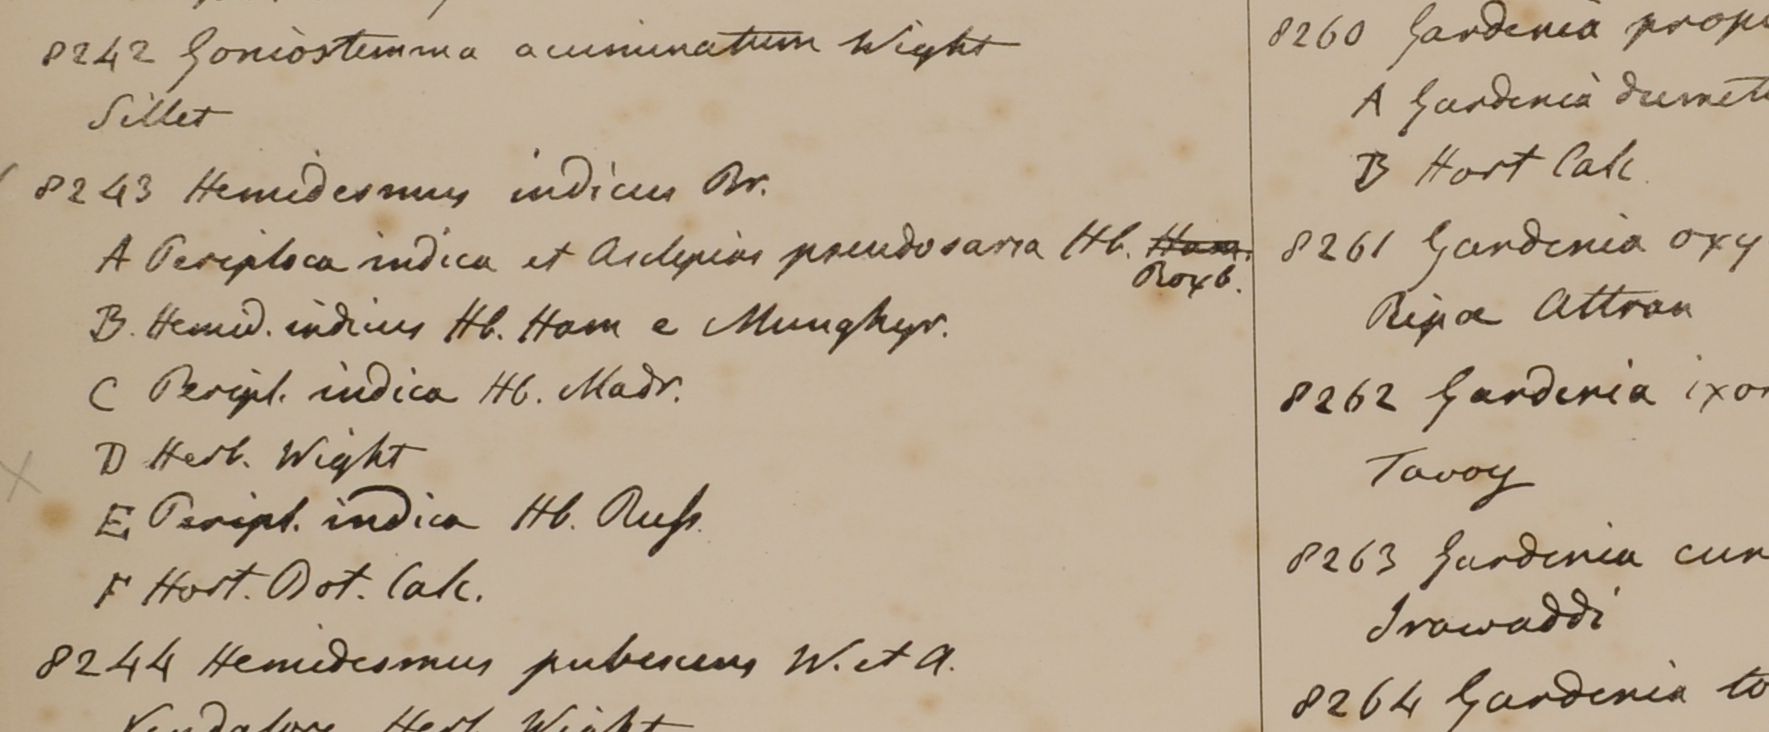 8242 Goniostemma acuminatum Wight
Sillet
8243 Hemidesmus indicus Br.
A Periploca indica et Asclepias pseudosarsa Hb. Ham.
Roxb.
B. Hemid. indicus Hb. Ham e Munghyr.
C Peripl. indica Hb. Madr.
D Herb. Wight
E Peripl. indica Hb. Russ.
F Hort. Bot. Calc.
8244 Hemidesmus pubescens W. et A.
Herb Wight
8260 Gardenia prop
A Gardenia dumet
B Hort Calc
8261 Gardenia oxy
Ripa Attran
8262 Gardenia ixor
Tavoy
8263 Gardenia cur
Irawaddi
8264 Gardenia to